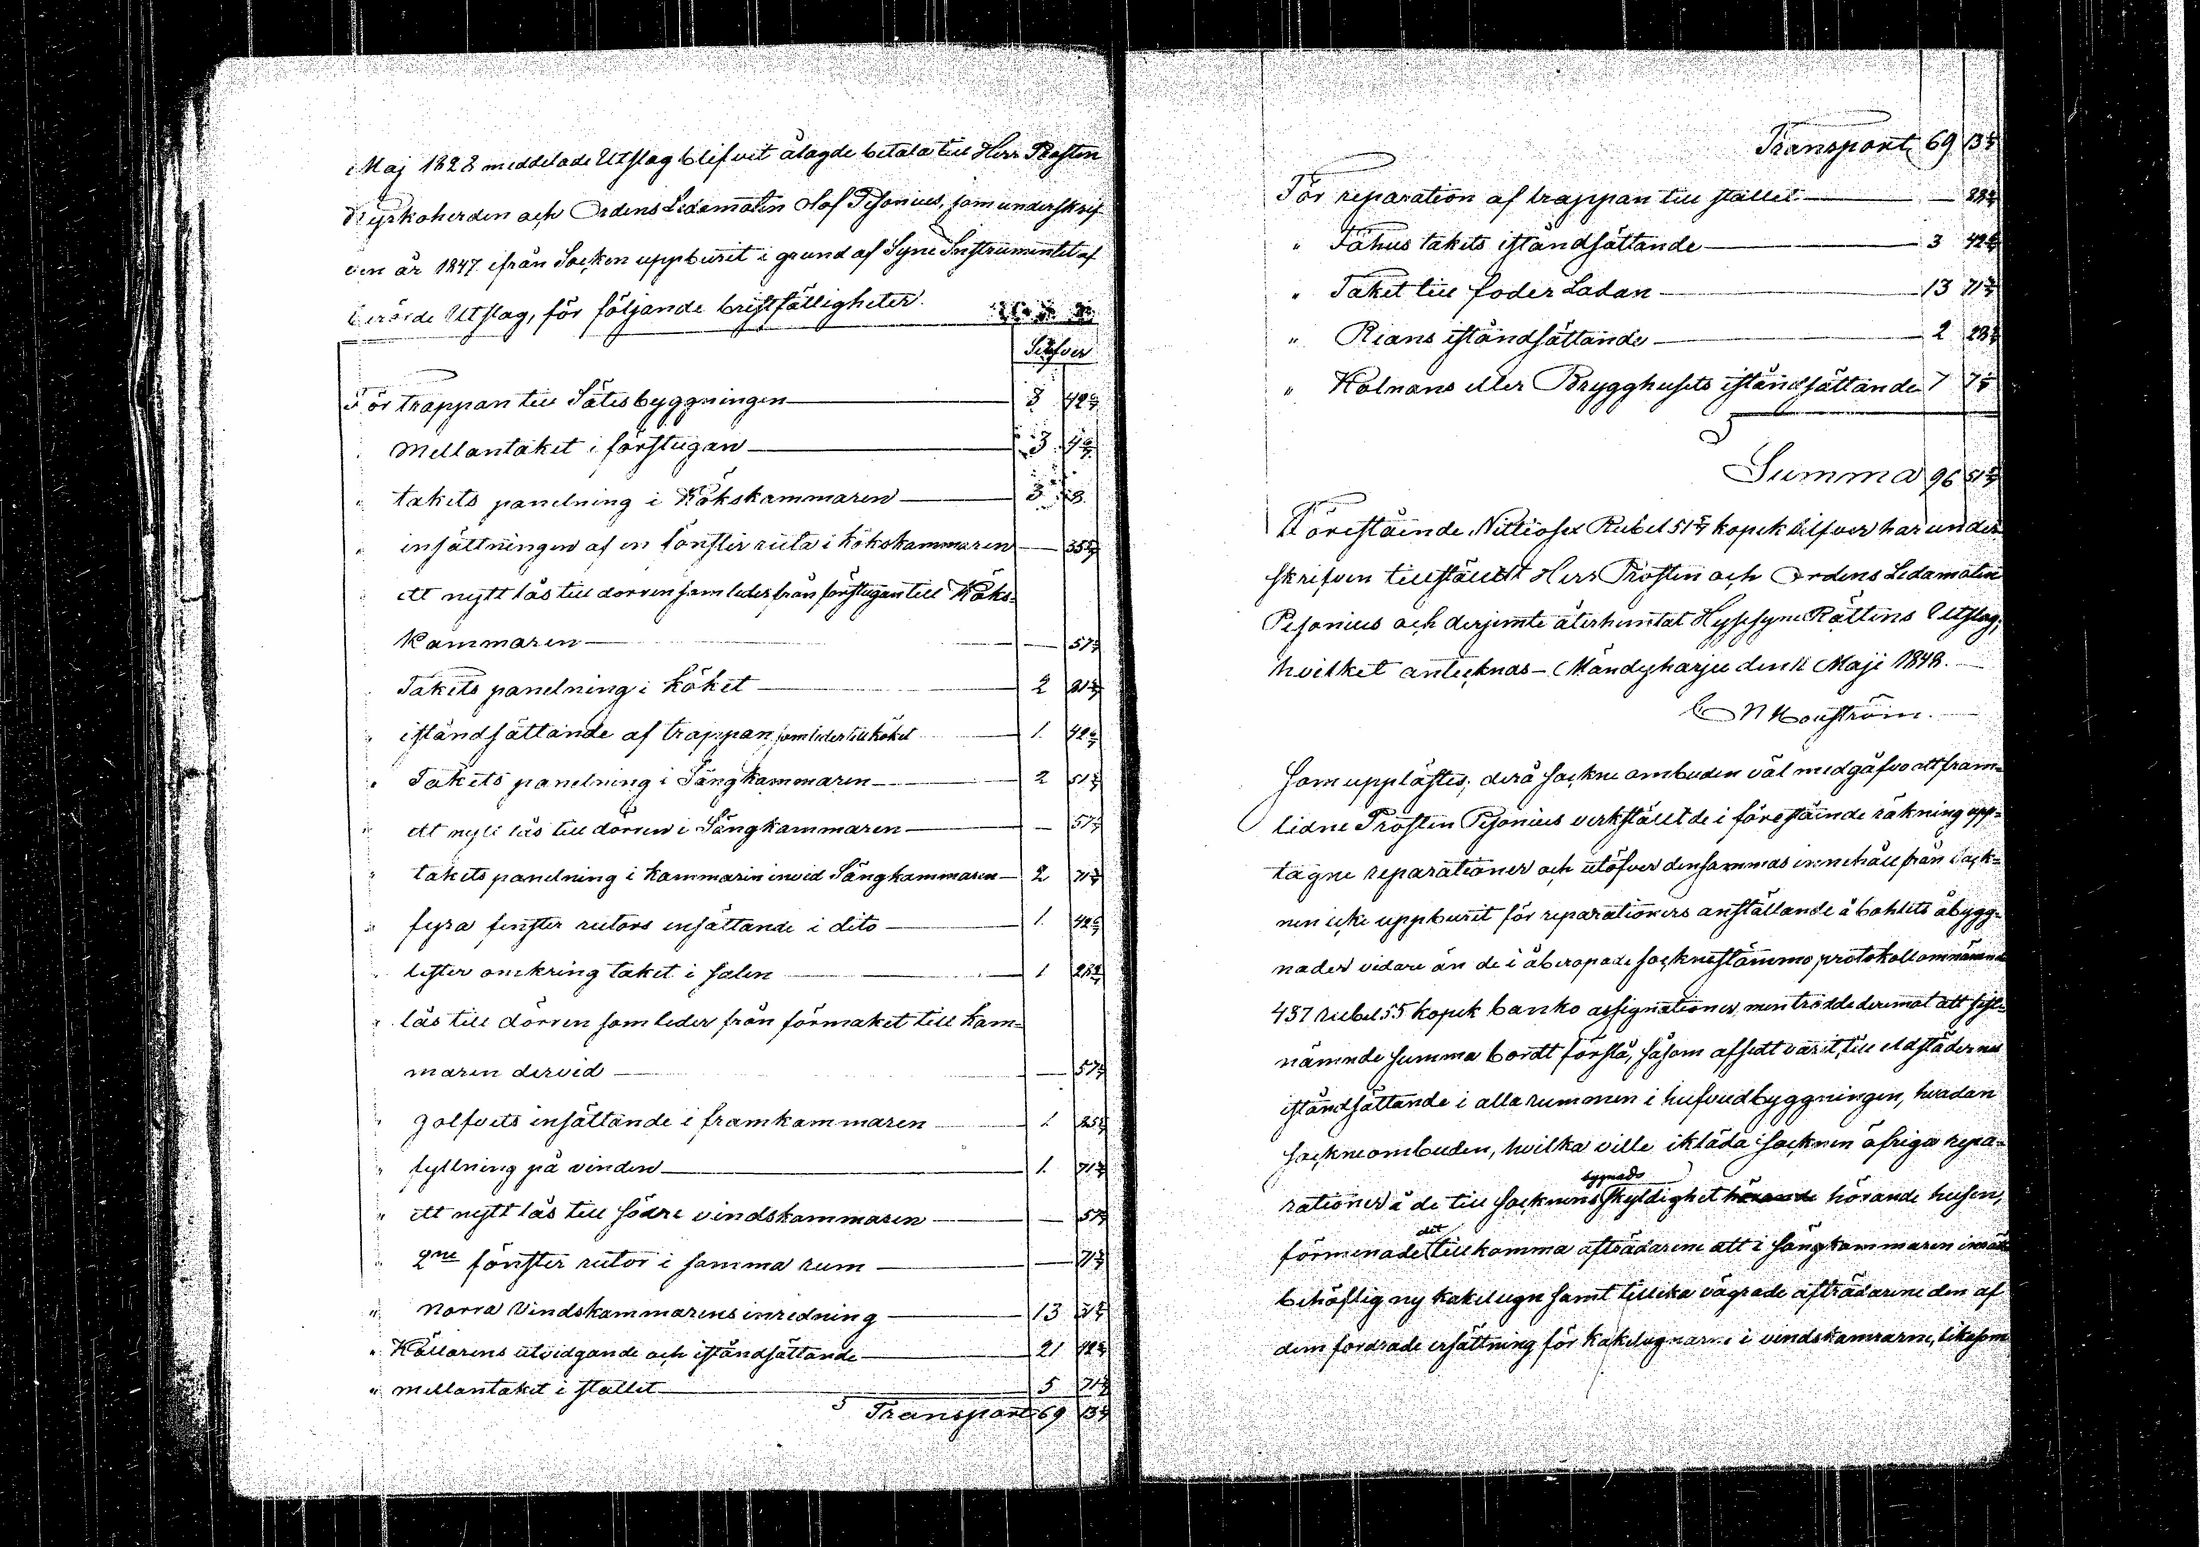 Maj 1828 meddelade Utslag blifvit ålagde betala till Herr Prosten
Kyrkoherden och Ordens Ledamoten Olof Pesonius, som underskrif
ven år 1847 ifrån Socken uppburit i grund af Syne Instrumentet af
berörde Utslag, för följande bristfälligheter.
Silfver
För trappan till Sätesbyggningen — 3 42 6/7
mellantaket i förstugan — 3 4
" takets panelning i Kökskammaren — 3 8
" insättningen af en fönster ruta i kökskammaren — 35 5/7
ett nytt lås till dörren som leder från förstugan till Köks-
kammaren — 57 1/7
Takets panelning i köket — 2 21 3/7
" iståndsättande af trappan som leder till köket 1 42 6/7
" Takets panelning i Sängkammaren — 2 51 3/7
" ett nytt lås till dörren i Sängkammaren — 57 1/7
" takets panelning i kammaren invid Sängkammaren — 2 71 3/7
" fyra fenster rutors insättande i dito — 1 42 6/7
" lister omkring taket i salen — 1 28 4/7
" lås till dörren som leder från förmaket till kam-
maren dervid — 57 1/7
" golfvets insättande i framkammaren 1 25 5/7
" fyllning på vinden — 1 71 3/7
" ett nytt lås till södre vindskammaren — 57 1/7
" 2ne fönster rutor i samma rum — 71 3/7
" norra Vindskammarens inredning — 13 21 3/7
" Källarens utvidgande och iståndsättande — 21 42 6/7
" mellantaket i stallet — 5 71 3/7
Transport 69 13 4/7
Transport 69 13 4/7
För reparation af trappan till stallet — 28 4/7
" Fähus takets iståndsättande — 3 42 6/7
" Taket till foder Ladan — 13 71 3/7
" Rians iståndsättande — 2 28 4/7
" Kölnans eller Brygghusets iståndsättande 7 7 1/7
Summa 96 51 3/7
Förestående Nittiosex Rubel 51 3/7 kopek silfver har under
skrifven tillstäldt Herr Prosten och Ordens Ledamoten
Pesonius och derjemte återhemtat Hussyne Rättens Utslag,
hvilket antecknas — Mändyharju den 11 Maji 1848.
Som upplästes; derå sockne ombuden väl medgåfvo att fram-
lidne Prosten Pesonius verkställt de i förestående räkning upp-
tagne reparationer och utöfver densammas innehåll från Sock-
nen icke uppburit för reparationers anställande å bohlets åbygg-
nader vidare än de i åberopade sockneståmmo protokoll omnämnde
437 rubel 55 kopek banko assignationer men trodde deremot att sist-
nämnde summa bordt förslå, såsom afsedt varit, till eldstädernas
iståndsättande i alla rummen i hufvudbyggningen, hvadan
sockneombuden, hvilka ville ikläda socknen öfriga repa-
byggnads
rationer å de till socknens skyldighet hörande husen,
det
förmenade tillkomma afträdarene att i sängkammaren insätta
behöflig ny kakelugn samt tillika vägrade afträdarene den af
dem fordrade ersättning för kakelugnarne i vindskamrarne, likasom